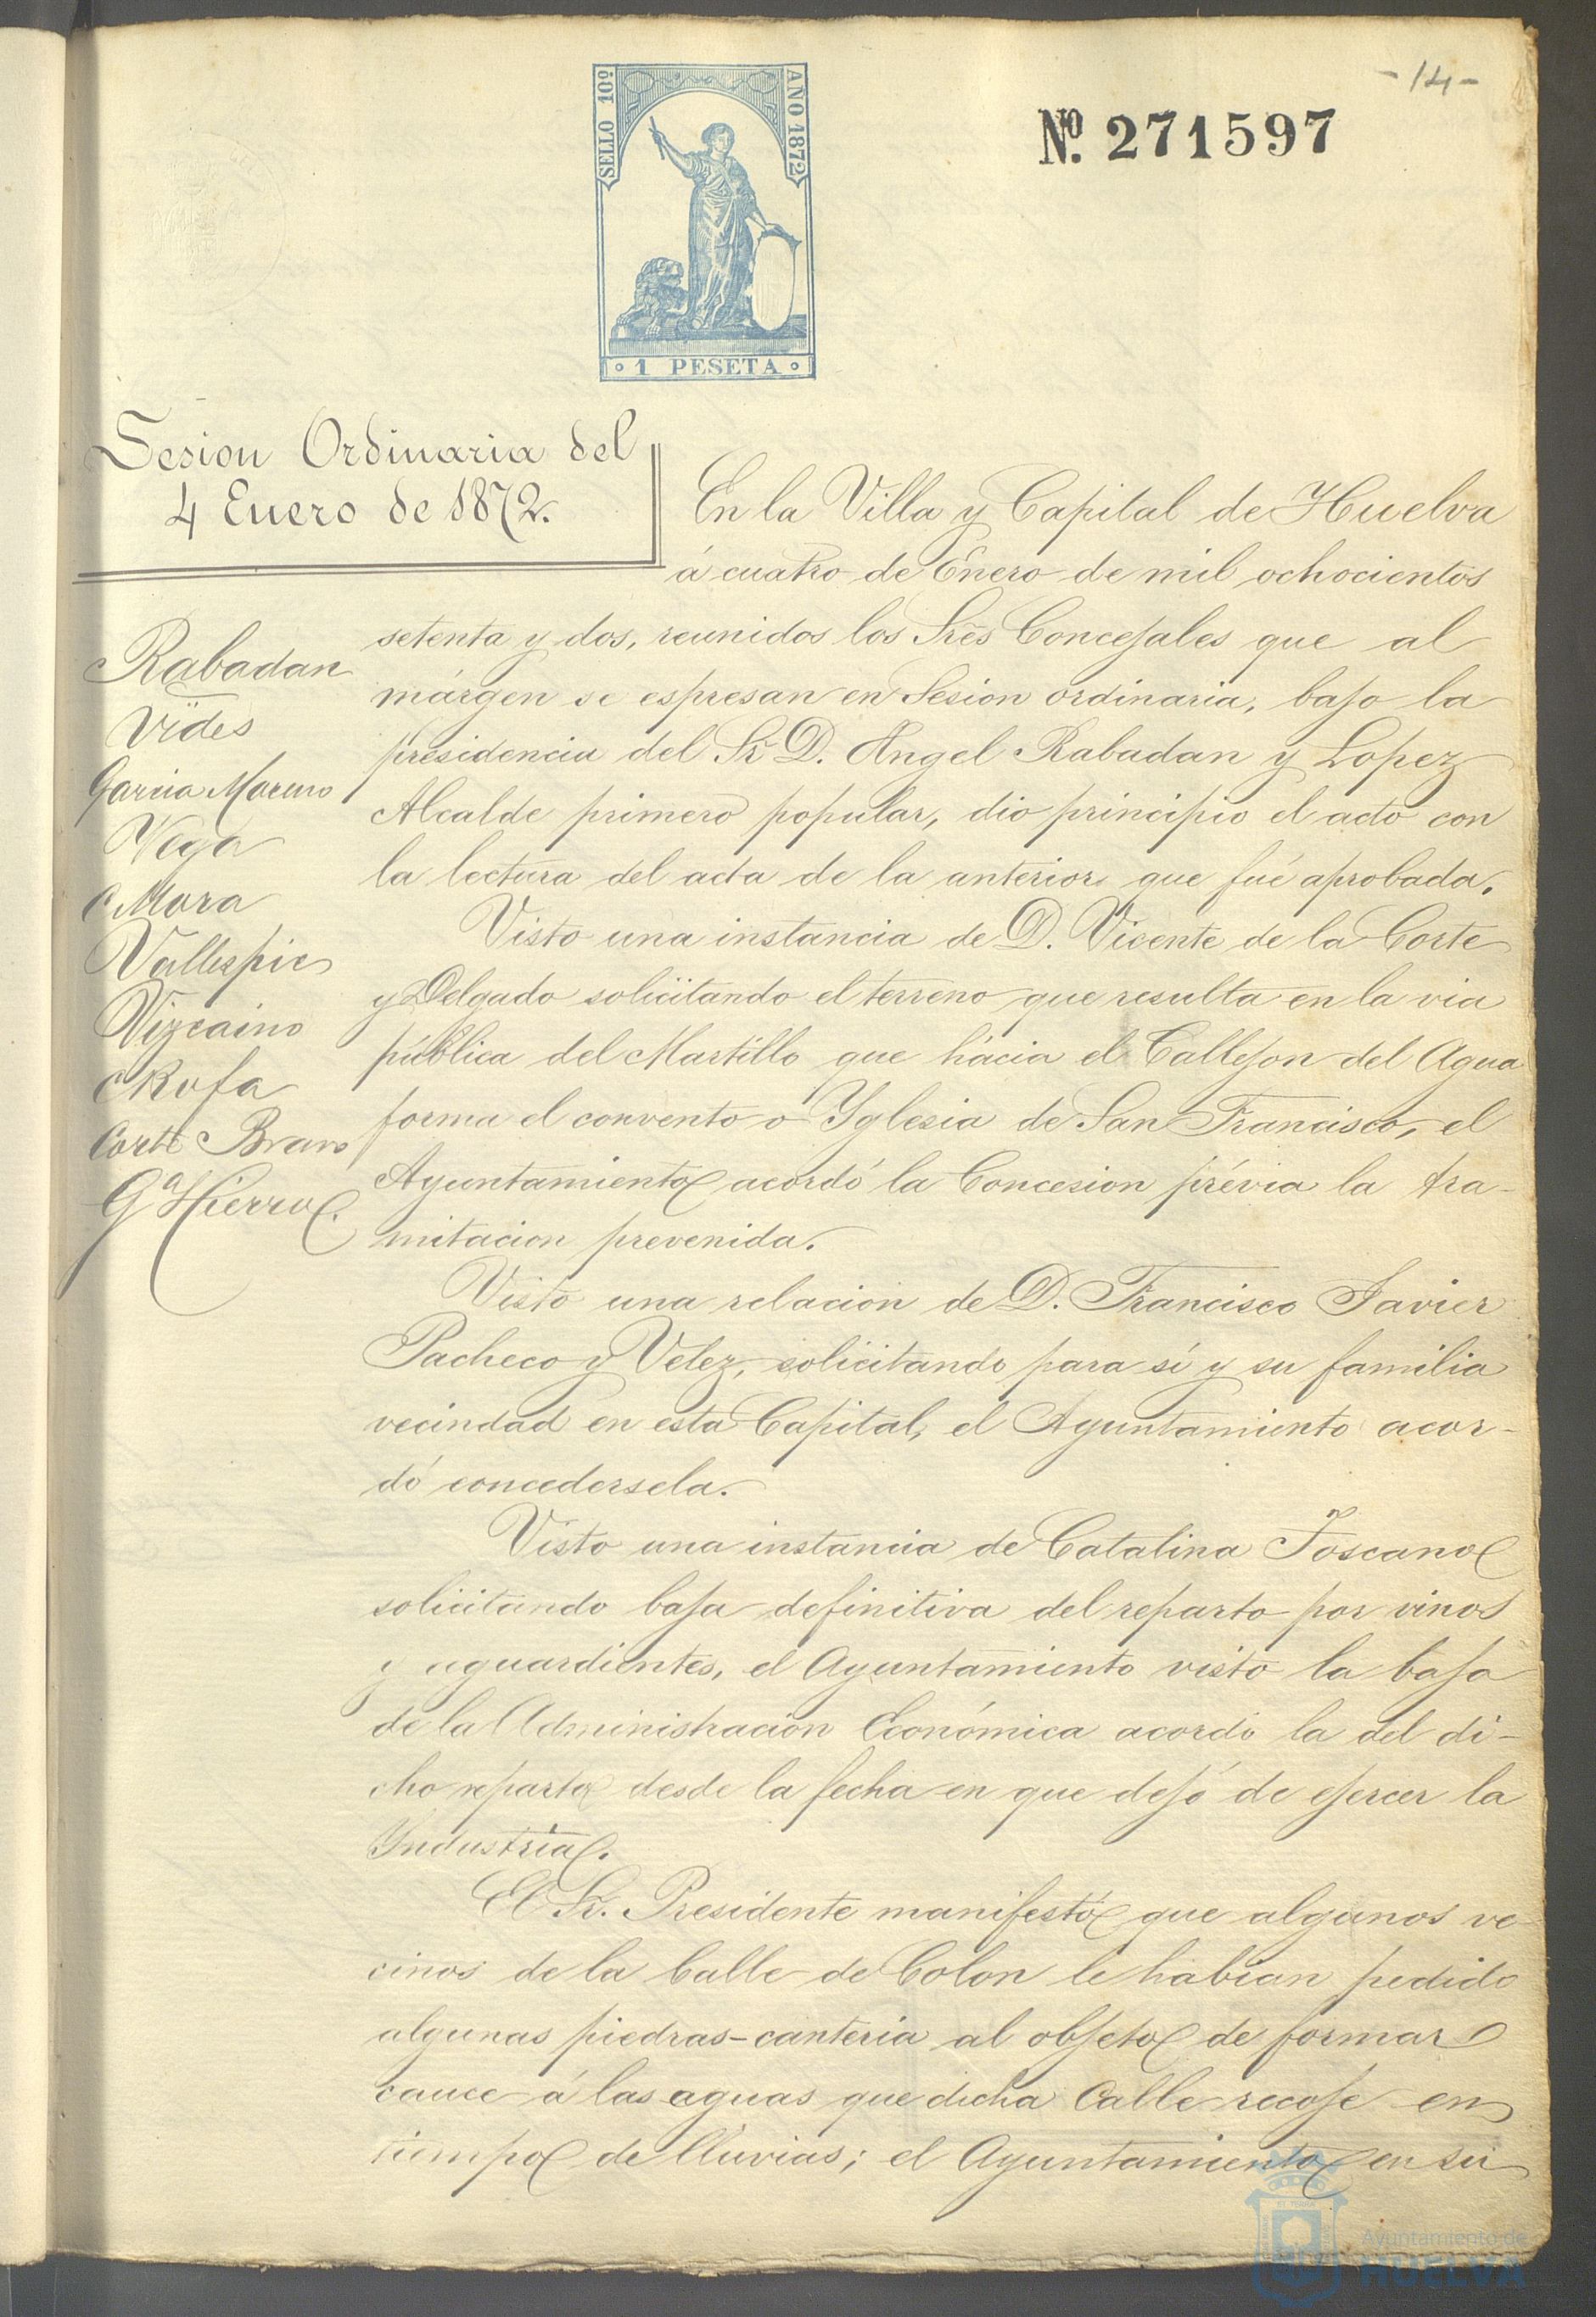 - 14 -
Nº. 271597
SELLO 10º
AÑO 1872
1 PESETA
Sesion Ordinaria del
4 Enero de 1872.
Rabadan
Vides
Garcia Moreno
Vega
Mora
Vallespin
Vizcaino
Rofa
Corte Bravo
Gª Hierro
En la Villa y Capital de Huelva
á cuatro de Enero de mil ochocientos
setenta y dos, reunidos los Sres Concejales que al
márgen se espresan en Sesion ordinaria, bajo la
presidencia del Sr D. Angel Rabadan y Lopez
Alcalde primero popular, dio principio el acto con
la lectura del acta de la anterior que fué aprobada.
Visto una instancia de D. Vicente de la Corte
y Delgado solicitando el terreno que resulta en la via
pública del Martillo que hácia el Callejon del Agua
forma el convento o Yglesia de San Francisco, el
Ayuntamiento acordó la Concesion prévia la tra-
mitacion prevenida.
Visto una relacion de D. Francisco Javier
Pacheco y Velez, solicitando para sí y su familia
vecindad en esta Capital, el Ayuntamiento acor-
dó concedersela.
Visto una instancia de Catalina Toscano
solicitando baja definitiva del reparto por vinos
y aguardientes, el Ayuntamiento visto la baja
de la Administracion Económica acordó la del di-
cho reparto desde la fecha en que dejó de ejercer la
Yndustria.
El Sr. Presidente manifestó que algunos ve
cinos de la Calle de Colon le habian pedido
algunas piedras-canteria al objeto de formar
cauce á las aguas que dicha Calle recoje en
tiempo de lluvias; el Ayuntamiento en su
Ayuntamiento de
HUELVA